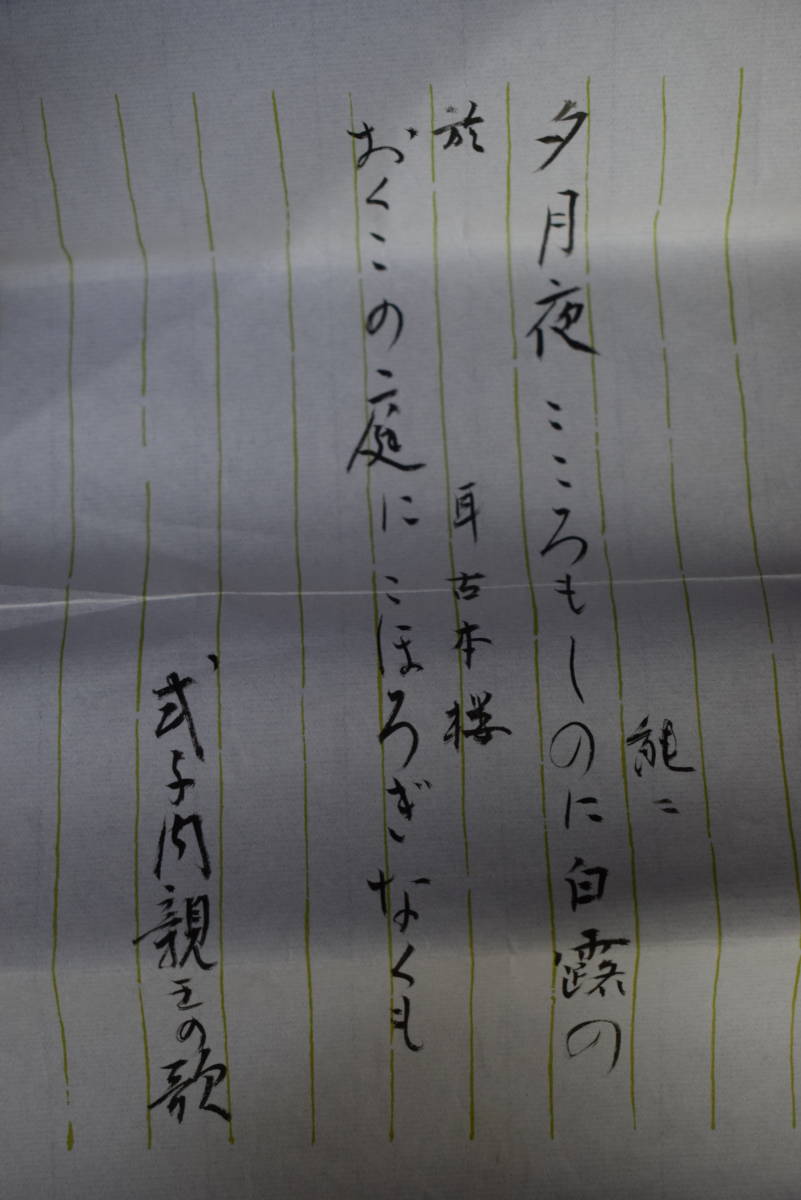 夕月夜こころもしのに白露の
能二
おくこの庭にこほろぎなくも
於 耳古本楼
式子内親王の歌